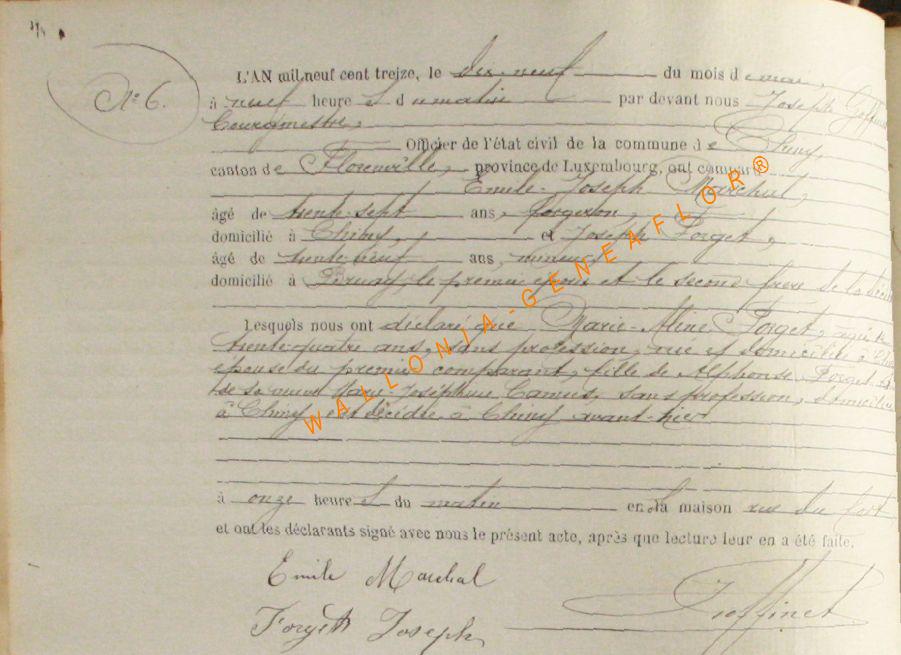 N° 6.
L'AN mil neuf cent treize, le dix-neuf du mois de mai,
à neuf heures du matin par devant nous Joseph Goffinet
Bourgmestre,
Officier de l'état civil de la commune de Chiny,
canton de Florenville, province de Luxembourg, ont comparu
Emile-Joseph Marchal,
âgé de trente-sept ans, forgeron,
domicilié à Chiny, et Joseph Forget,
âgé de trente ans, mineur,
domicilié à le premier époux et le second frère de la
Lesquels nous ont déclaré que Marie-Aline Forget, âgée de
trente-quatre ans, sans profession, née et domiciliée à
épouse du premier comparant, fille de Alphonse Forget et
de Marie-Joséphine Camus, sans profession, domiciliés
à Chiny, est décédée à Chiny avant-hier
à onze heures du matin en sa maison rue du fort
et ont les déclarants signé avec nous le présent acte, après que lecture leur en a été faite.
Emile Marchal
Goffinet
Forget Joseph
WALLONIA-GENEAFLOR®